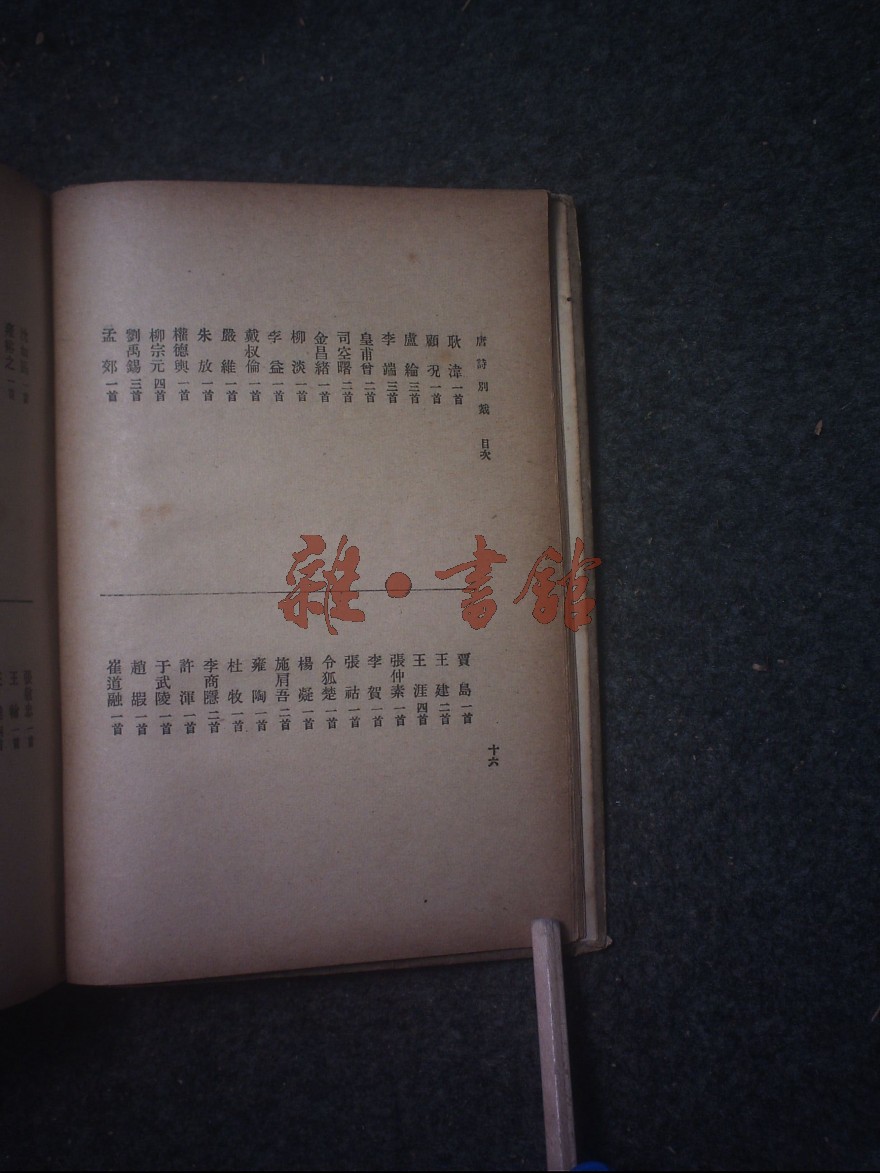 唐詩別裁 目次
耿湋一首
顧況一首
盧綸三首
李端三首
皇甫曾二首
司空曙二首
金昌緒一首
柳淡一首
李益一首
戴叔倫一首
嚴維一首
朱放一首
權德輿一首
柳宗元四首
劉禹錫三首
孟郊一首
賈島一首
王建二首
王涯四首
張仲素一首
李賀一首
張祜一首
令狐楚一首
楊凝一首
施肩吾二首
雍陶一首
杜牧一首
李商隱二首
許渾一首
于武陵一首
趙嘏一首
崔道融一首
十六
雜·書館